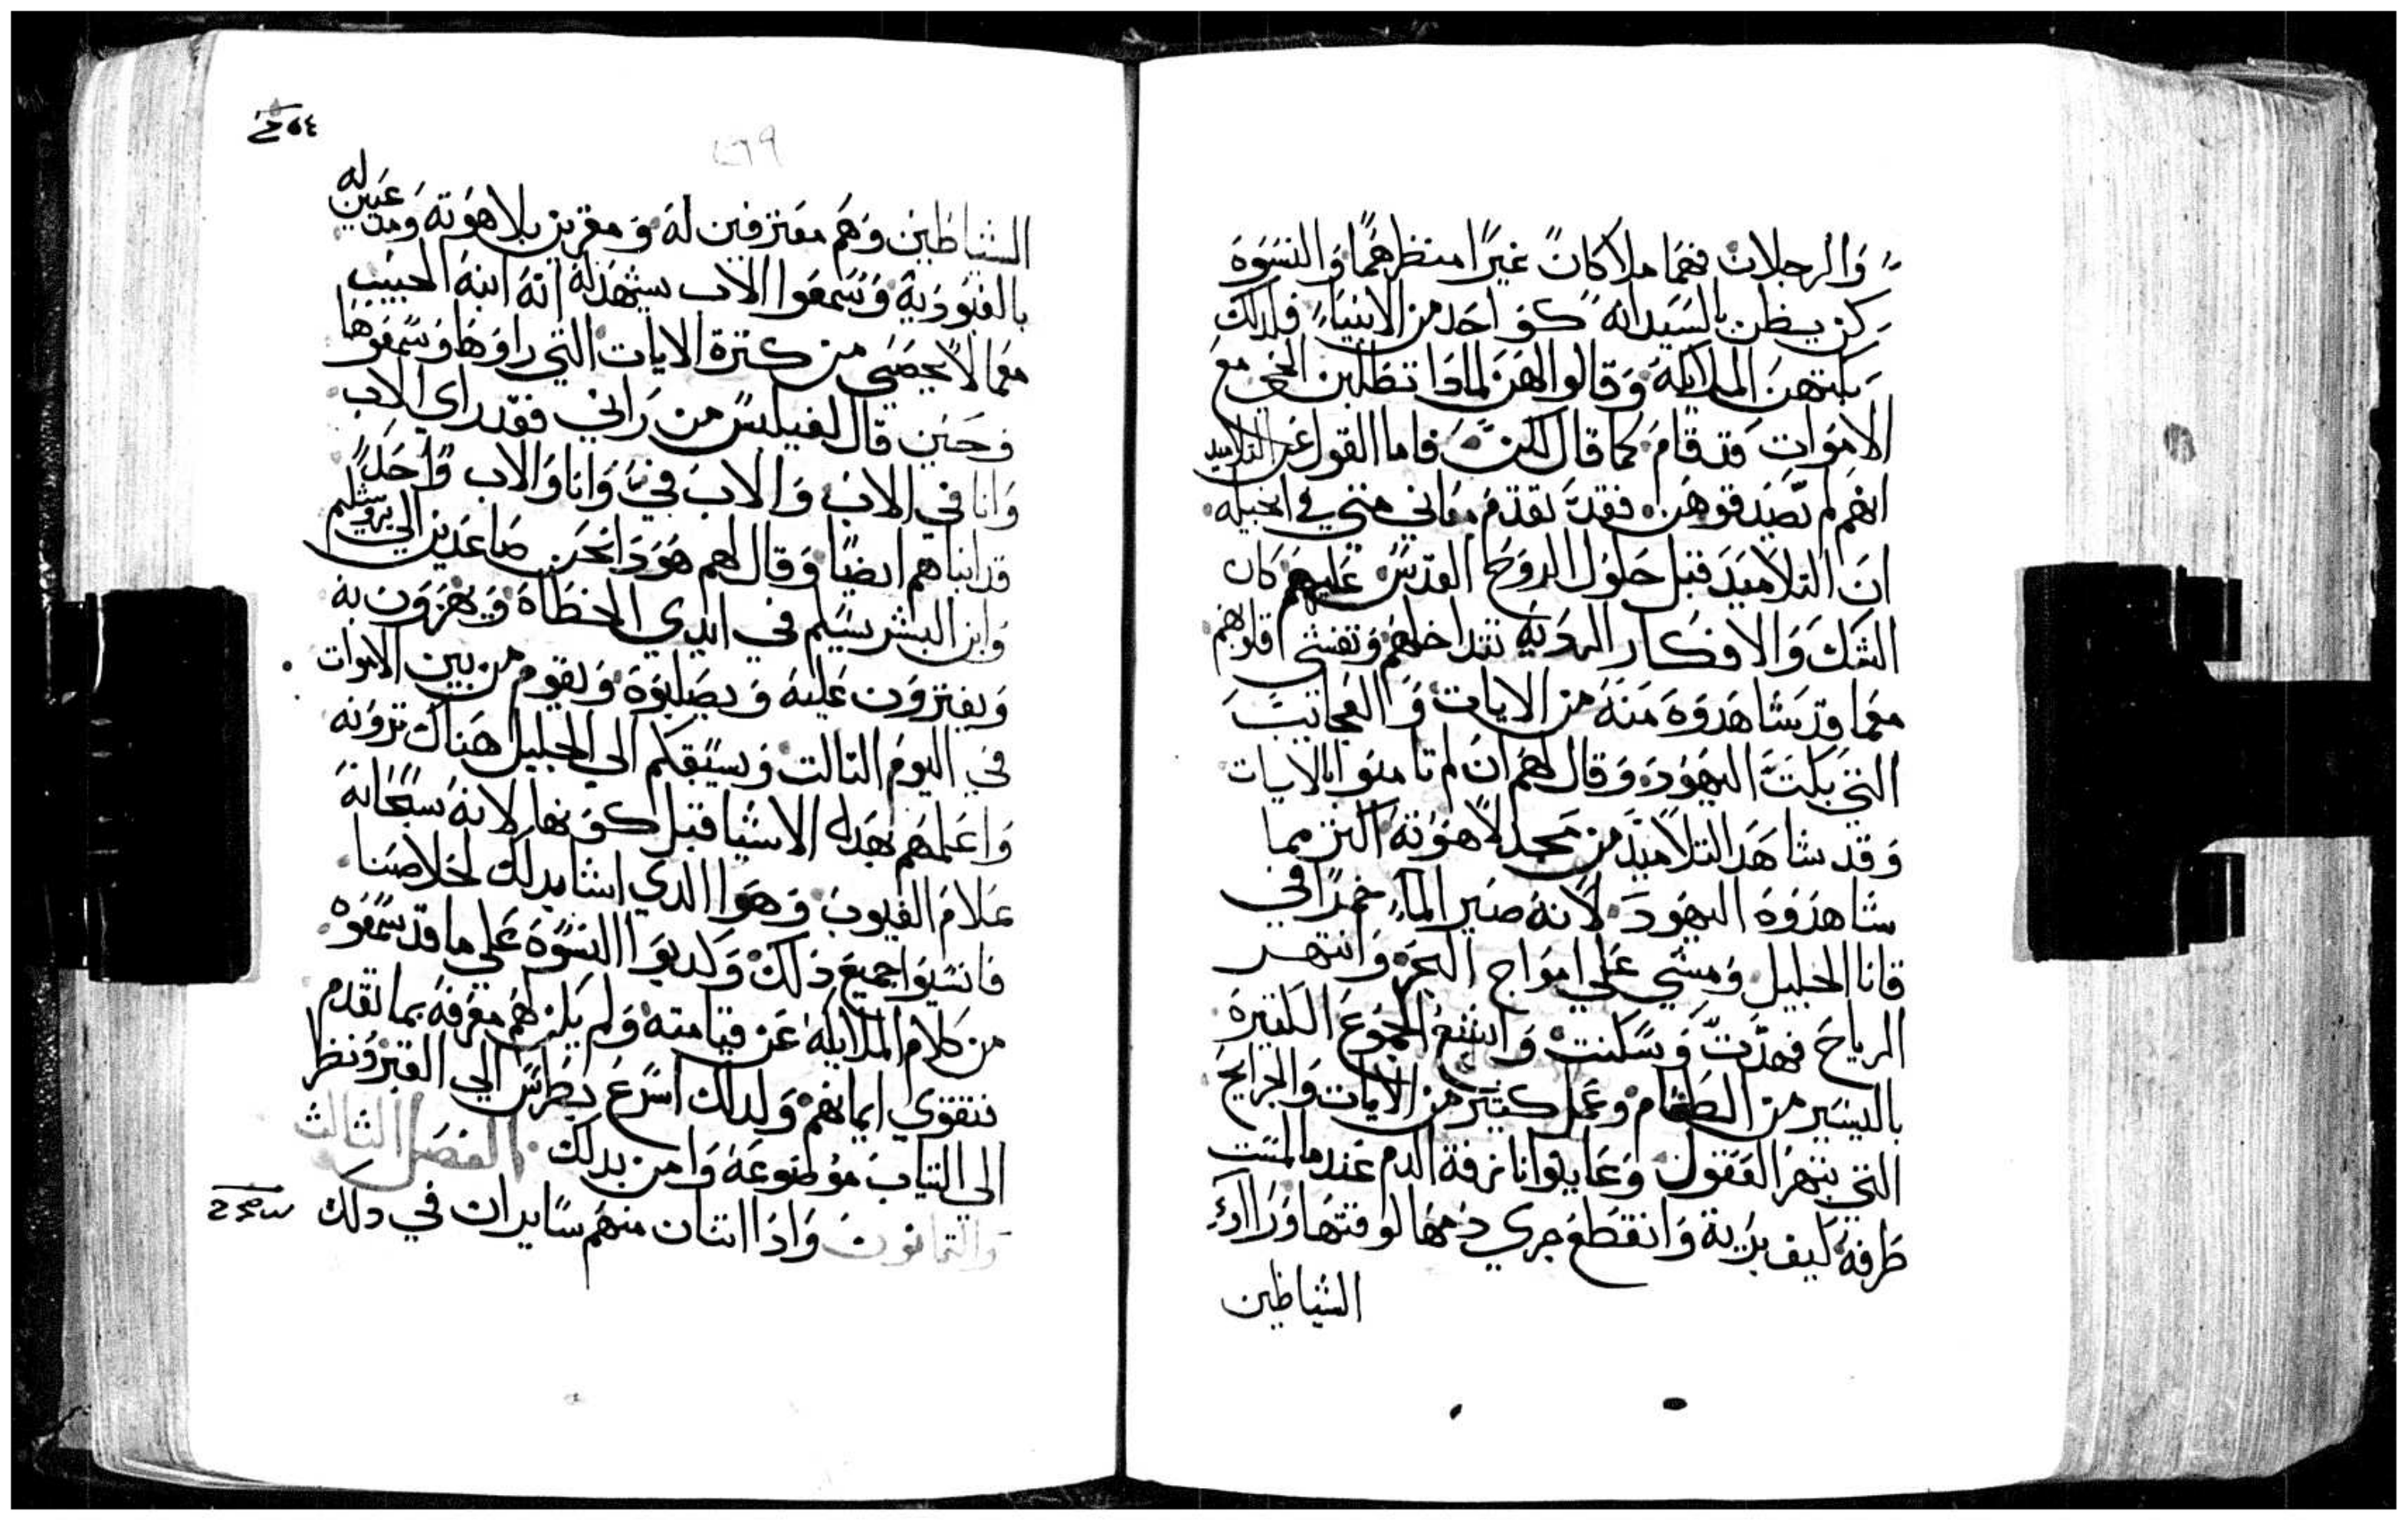 وَالرجلان فهما ملاكان غيرا منظرهما والنسوة
كن يظن بالسيد انه كو احد من الانبياء فلدلك
بكتهن الملايكه وقالوا لهن لمادا تطلبن الحي مع
الاموات قد قام كما قال لكن فاما القول عن التلاميد
انهم لم تصدقوهن فقد تقدم معاني متي في انجيله
ان التلاميد قبل حلول الروح القدس عليهم كان
الشك والافكار الرديه تتداخلهم وتفشي قلوبهم
معما قد شاهدوه منه من الايات والعجايب
التي بكت اليهود وقال لهم ان لم تامنوا بالايات
وقد شاهد التلاميد من مجد لاهوته اكتر مما
شاهدوه اليهود لانه صير الماء خمرا في
قانا الجليل ومشي علي امواج البحر وانتهر
الرياح فهدت وسكنت واشبع الجموع الكتيره
باليسير من الطعام وعمل كتير من الايات والجرايح
التي تبهر العقول وعاينوا نازفة الدم عندما لمست
طرفه كيف برية وانقطع جري دمها لوقتها وراؤ
الشياطين
٥٤
٢٦٩
الشياطين وهم معترفين له ومقرين بلاهوته ومدعيين له
بالعبودية وسمعوا الاب يشهد له انه ابنه الحبيب
معما لا يحصي من كترة الايات التي راوها وسمعوها
وحين قال لفيلبس من راني فقد راي الاب
وانا في الاب والاب في وانا والاب واحدا
قد انباهم ايضا وقال لهم هودا نحن صاعدين الي يروشليم
وابن البشر يسلم في ايدي الخطاة ويهزون به
ويفترون عليه ويصلبوه ويقوم من بين الاموات
في اليوم التالت ويسبقكم الي الجليل هناك ترونه
واعلمهم بهده الاشيا قبل كونها لانه سبحانه
علام الغيوب وهوا الدي اشا بدلك لخلاصنا
فانسيوا جميع ذلك وكدبوا النسوة علي ما قد سمعوه
من كلام الملايكه عن قيامته ولم يكن لهم معرفة بما تقدم
فتقوي ايمانهم ولدلك اسرع بطرس الي القبر ونظر
الي التياب موضوعة وامن بدلك الفصل الثالث
والتمانون وادا اتنان منهم سايران في دلك